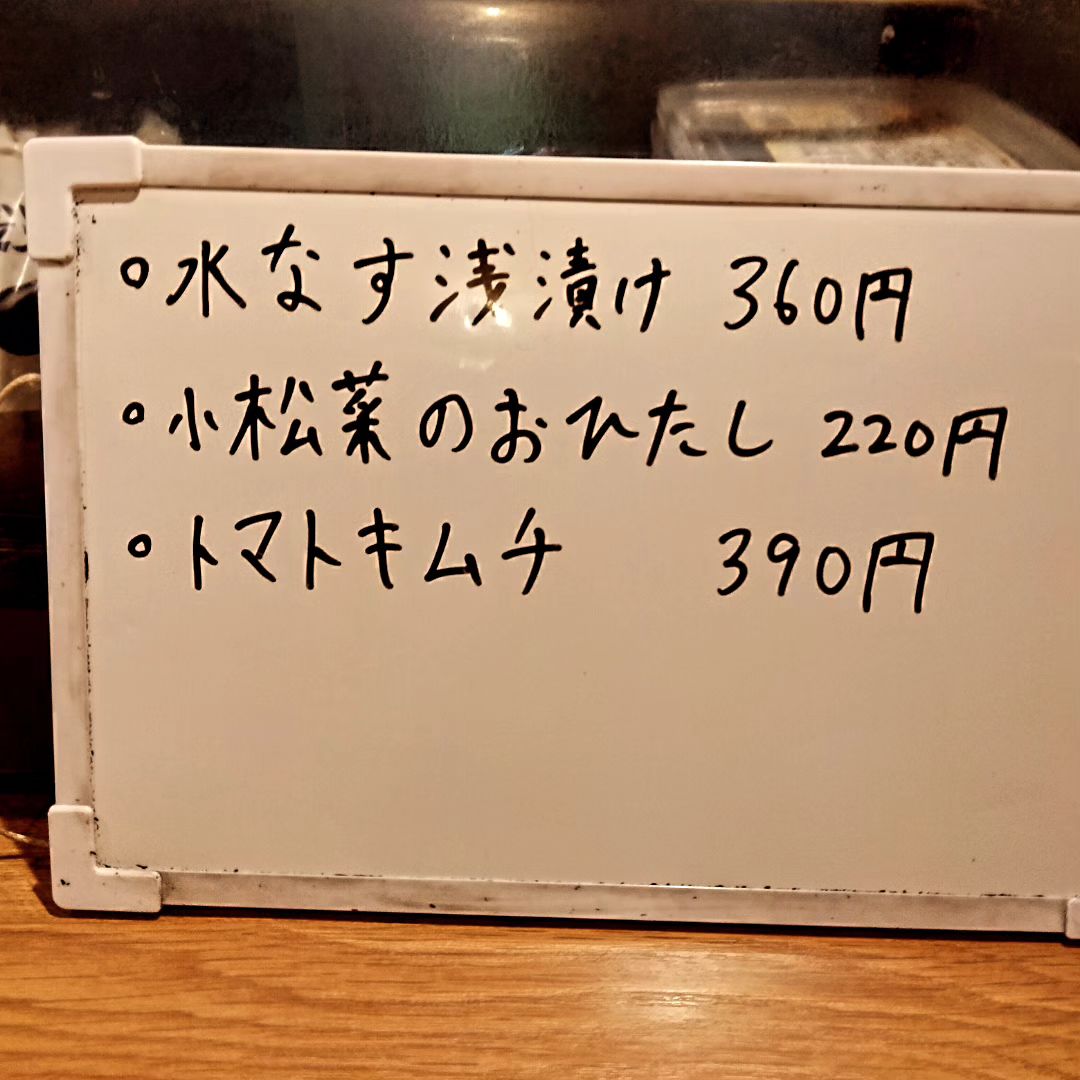 ○水なす浅漬け 360円
○小松菜のおひたし 220円
○トマトキムチ 390円